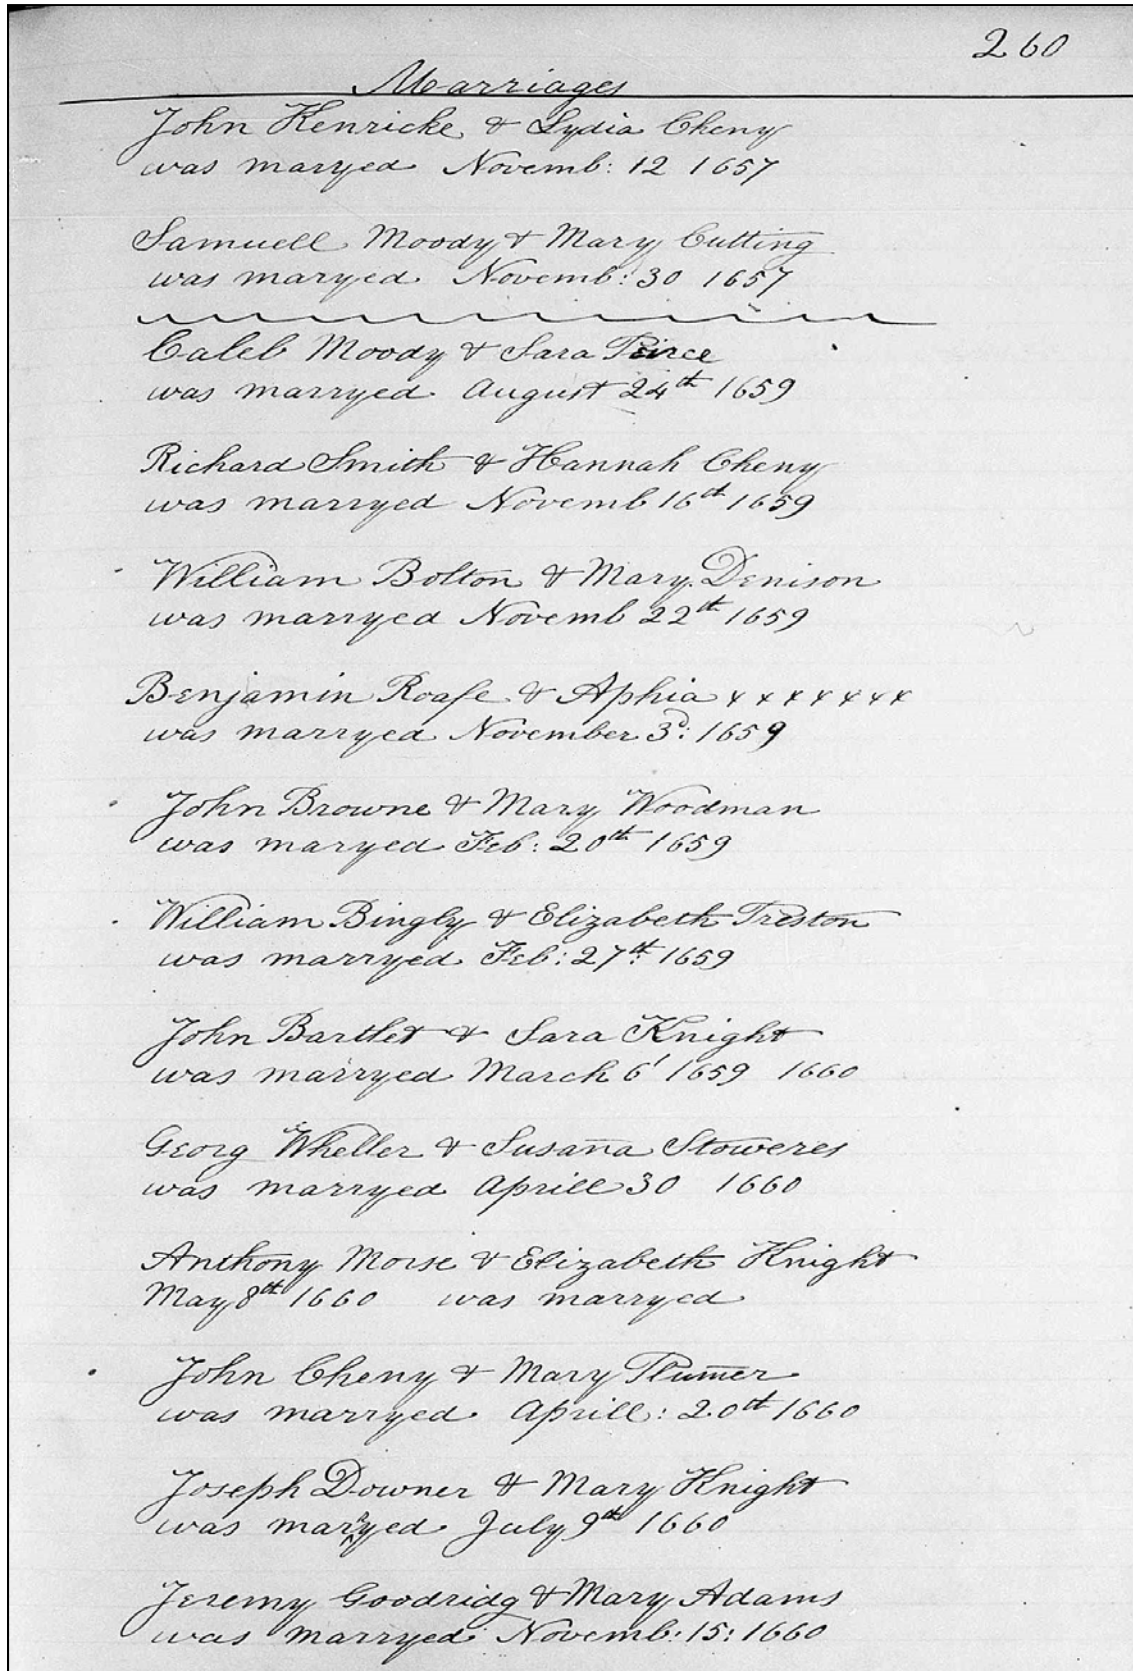 260
Marriages
John Kenricke & Lydia Cheny
was maryed Novemb: 12 1657
Samuell Moody & Mary Cutting
was maryed Novemb: 30 1657
Caleb Moody & Sara Peirce
was marryed August 24th 1659
Richard Smith & Hannah Cheny
was marryed Novemb 16th 1659
William Bolton & Mary Denison
was marryed Novemb 22th 1659
Benjamin Roafe & Aphia x x x x x x x
was marryed November 3d: 1659
John Browne & Mary Woodman
was maryed Feb: 20th 1659
William Bingly & Elizabeth Preston
was marryed Feb: 27th: 1659
John Bartlet & Sara Knight
was marryed March 6' 1659 1660
Georg Wheller & Susan̄a Stoweres
was marryed Aprill 30 1660
Anthony Morse & Elizabeth Knight
May 8th 1660 was marryed
John Cheny & Mary Plum̄er
was marryed Aprill: 20th 1660
Joseph Downer & Mary Knight
was marryed July 9th 1660
Jeremy Goodridg & Mary Adams
was marryed Novemb: 15: 1660